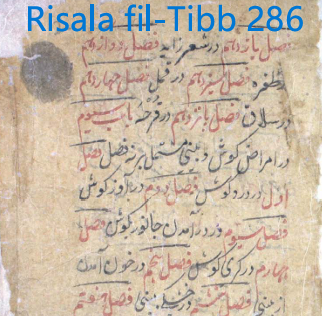 Risala fil-Tibb 286
فصل یازدهم در شعر زاید فصل دوازدهم
در ظفره فصل سیزدهم در قمل فصل چهاردهم
در سلاق فصل پانزدهم در قرحه باب سیوم
در امراض کوش و بینی مشتمل بر نه فصل فصل
اول در درد کوش فصل دوم در آواز کوش
فصل سیوم در در آمدن جانور کوش فصل
چهارم در کری کوش فصل پنجم در خون آمدن
از بینی فصل ششم در بینی فصل هفتم